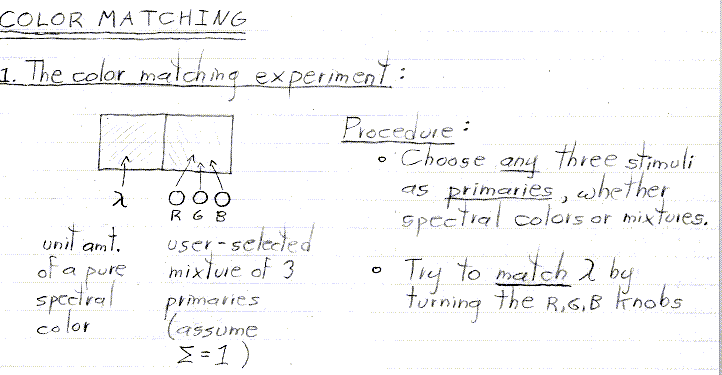 COLOR MATCHING
1. The color matching experiment:
λ
R G B
unit amt.
of a pure
spectral
color
user-selected
mixture of 3
primaries
(assume
Σ=1)
Procedure:
∘ Choose any three stimuli
as primaries, whether
spectral colors or mixtures.
∘ Try to match λ by
turning the R,G,B knobs